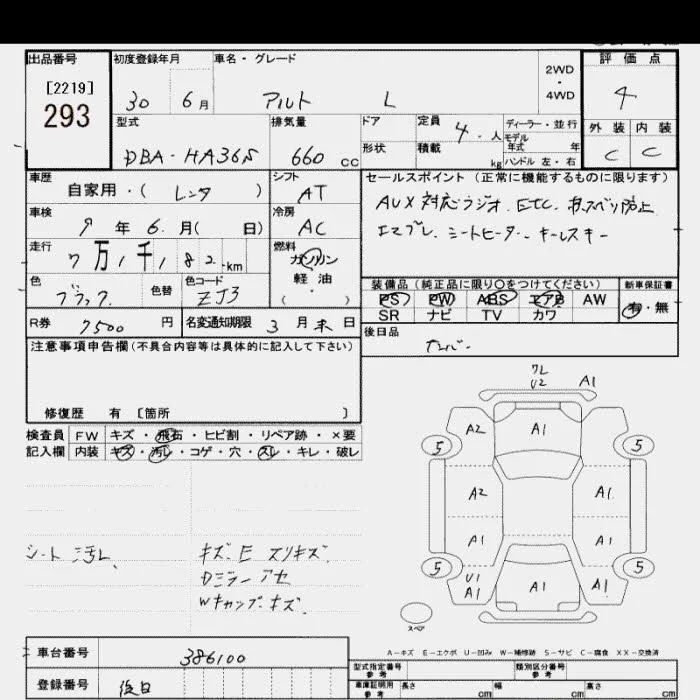 出品番号 初度登録年月 車名・グレード 2WD・4WD 評価点
[2219]
293
30 6月 アルト L 4
型式 排気量 ドア 定員 4・人 ディーラー・並行 外装 内装
モデル年式 年式
DBA-HA36S 660cc 形状 積載 kg ハンドル 左・右 C C
車歴 自家用・( レンタ ) シフト AT セールスポイント (正常に機能するものに限ります)
AUX対応ラジオ. ETC. 横スベリ防止
車検 9年 6月( 日) 冷房 AC
エマブレ. シートヒーター. キーレスキー
走行 7万1千182km 燃料 ガソリン
軽油
( ・ )
色 ブラック 色替 色コード ZJ3
装備品 (純正品に限り○をつけてください) 新車保証書
PS PW ABS エアB AW 有・無
SR ナビ TV カワ
R券 7500円 名変通知期限 3月末日
後日品 ナンバー
注意事項申告欄(不具合内容等は具体的に記入して下さい)
修復歴 有 [箇所 ]
検査員 FW キズ・飛石・ヒビ割・リペア跡・×要
記入欄 内装 キズ・汚レ・コゲ・穴・スレ・キレ・破レ
シート汚レ
キズ.E スリキズ
Dミラーアセ
Wキャップキズ
ワレ
U2 A1
A2 A1
5 5
A2 A1
A1 A1
5 5
U1
A1 A1 A1
スペア
A-キズ E-エクボ U-凹み W-補修跡 S-サビ C-腐食 XX-交換済
車台番号 386100
型式指定番号 参考 類別区分番号 参考
登録番号 後日
車庫証明用 参考 長さ cm 幅 cm 高さ cm